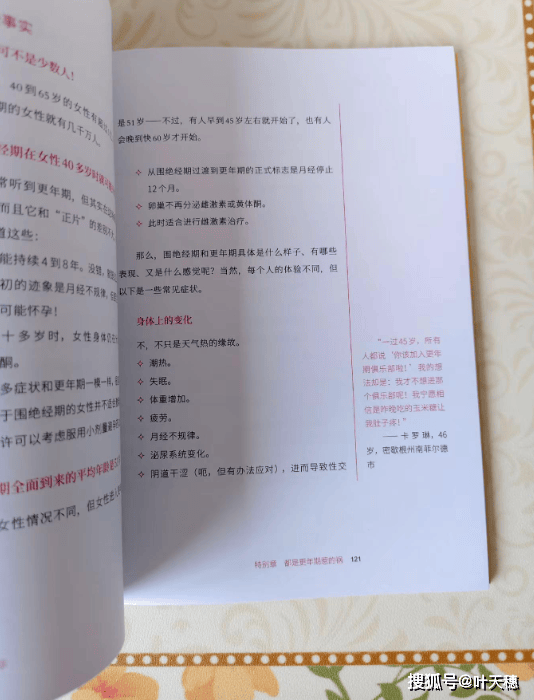 事实
可不是少数人！
40到65岁的女性有
期的女性就有几千万人。
经期在女性40多岁时就可
常听到更年期，但其实在
而且它和“正片”的
道这些：
能持续4到8年。没错，
初的迹象是月经不规律，
可能怀孕！
十多岁时，女性身体仍
酮。
多症状和更年期一模一样，
于围绝经期的女性并不适
许可以考虑服用小剂量
期全面到来的平均年龄
女性情况不同，但女性进入
是51岁——不过，有人早到45岁左右就开始了，也有人
会晚到快60岁才开始。
✧ 从围绝经期过渡到更年期的正式标志是月经停止
12个月。
✧ 卵巢不再分泌雌激素或黄体酮。
✧ 此时适合进行雌激素治疗。
那么，围绝经期和更年期具体是什么样子、有哪些
表现、又是什么感觉呢？当然，每个人的体验不同，但
以下是一些常见症状。
身体上的变化
不，不只是天气热的缘故。
✧ 潮热。
✧ 失眠。
✧ 体重增加。
✧ 疲劳。
✧ 月经不规律。
✧ 泌尿系统变化。
✧ 阴道干涩（呃，但有办法应对），进而导致性交
“一过45岁，所有
人都说‘你该加入更年
期俱乐部啦！’我的想
法却是：我才不想进那
个俱乐部呢！我宁愿相
信是昨晚吃的玉米糖让
我肚子疼！”
—— 卡罗琳，46
岁，密歇根州南菲尔德
市
特别章 都是更年期惹的祸 121
搜狐号@叶天穗